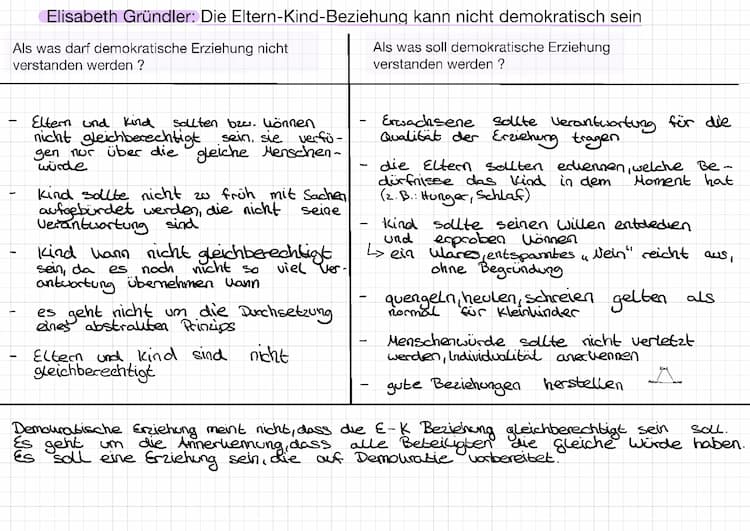 Elisabeth Gründler: Die Eltern-Kind-Beziehung kann nicht demokratisch sein
Als was darf demokratische Erziehung nicht
verstanden werden ?
- Eltern und Kind sollten bzw. können
nicht gleichberechtigt sein, sie verfü-
gen nur über die gleiche Menschen-
würde
- Kind sollte nicht zu früh mit Sachen
aufgebürdet werden, die nicht seine
Verantwortung sind
- Kind kann nicht gleichberechtigt
sein, da es noch nicht so viel Ver-
antwortung übernehmen kann
- es geht nicht um die Durchsetzung
eines abstrakten Prinzips
- Eltern und Kind sind nicht
gleichberechtigt
Als was soll demokratische Erziehung
verstanden werden ?
- Erwachsene sollte Verantwortung für die
Qualität der Erziehung tragen
- die Eltern sollten erkennen, welche Be-
dürfnisse das Kind in dem Moment hat
(z.B.: Hunger, Schlaf)
- Kind sollte seinen Willen entdecken
und erproben können
↳ ein klares, entspanntes „Nein" reicht aus,
ohne Begründung
- quengeln, heulen, schreien gelten als
normal für Kleinkinder
- Menschenwürde sollte nicht verletzt
werden, Individualität anerkennen
- gute Beziehungen herstellen
Demokratische Erziehung meint nicht, dass die E-K Beziehung gleichberechtigt sein soll.
Es geht um die Annerkennung, dass alle Beteiligten die gleiche Würde haben.
Es soll eine Erziehung sein, die auf Demokratie vorbereitet.